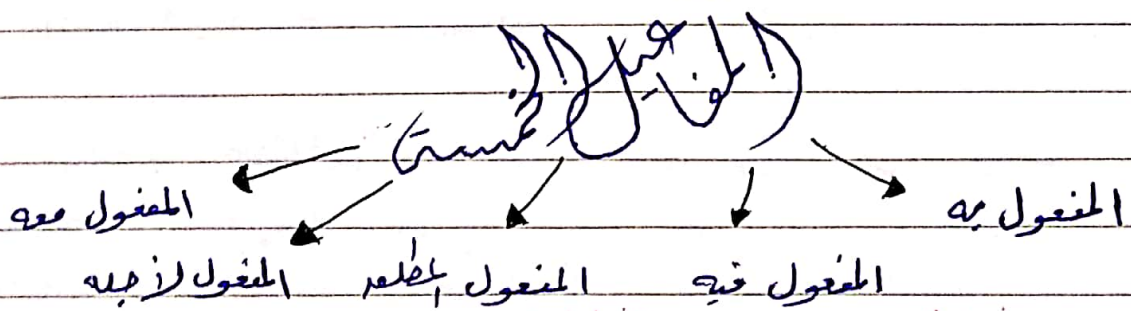 المفاعيل الخمسة
المفعول به
المفعول فيه
المفعول المطلق
المفعول لأجله
المفعول معه